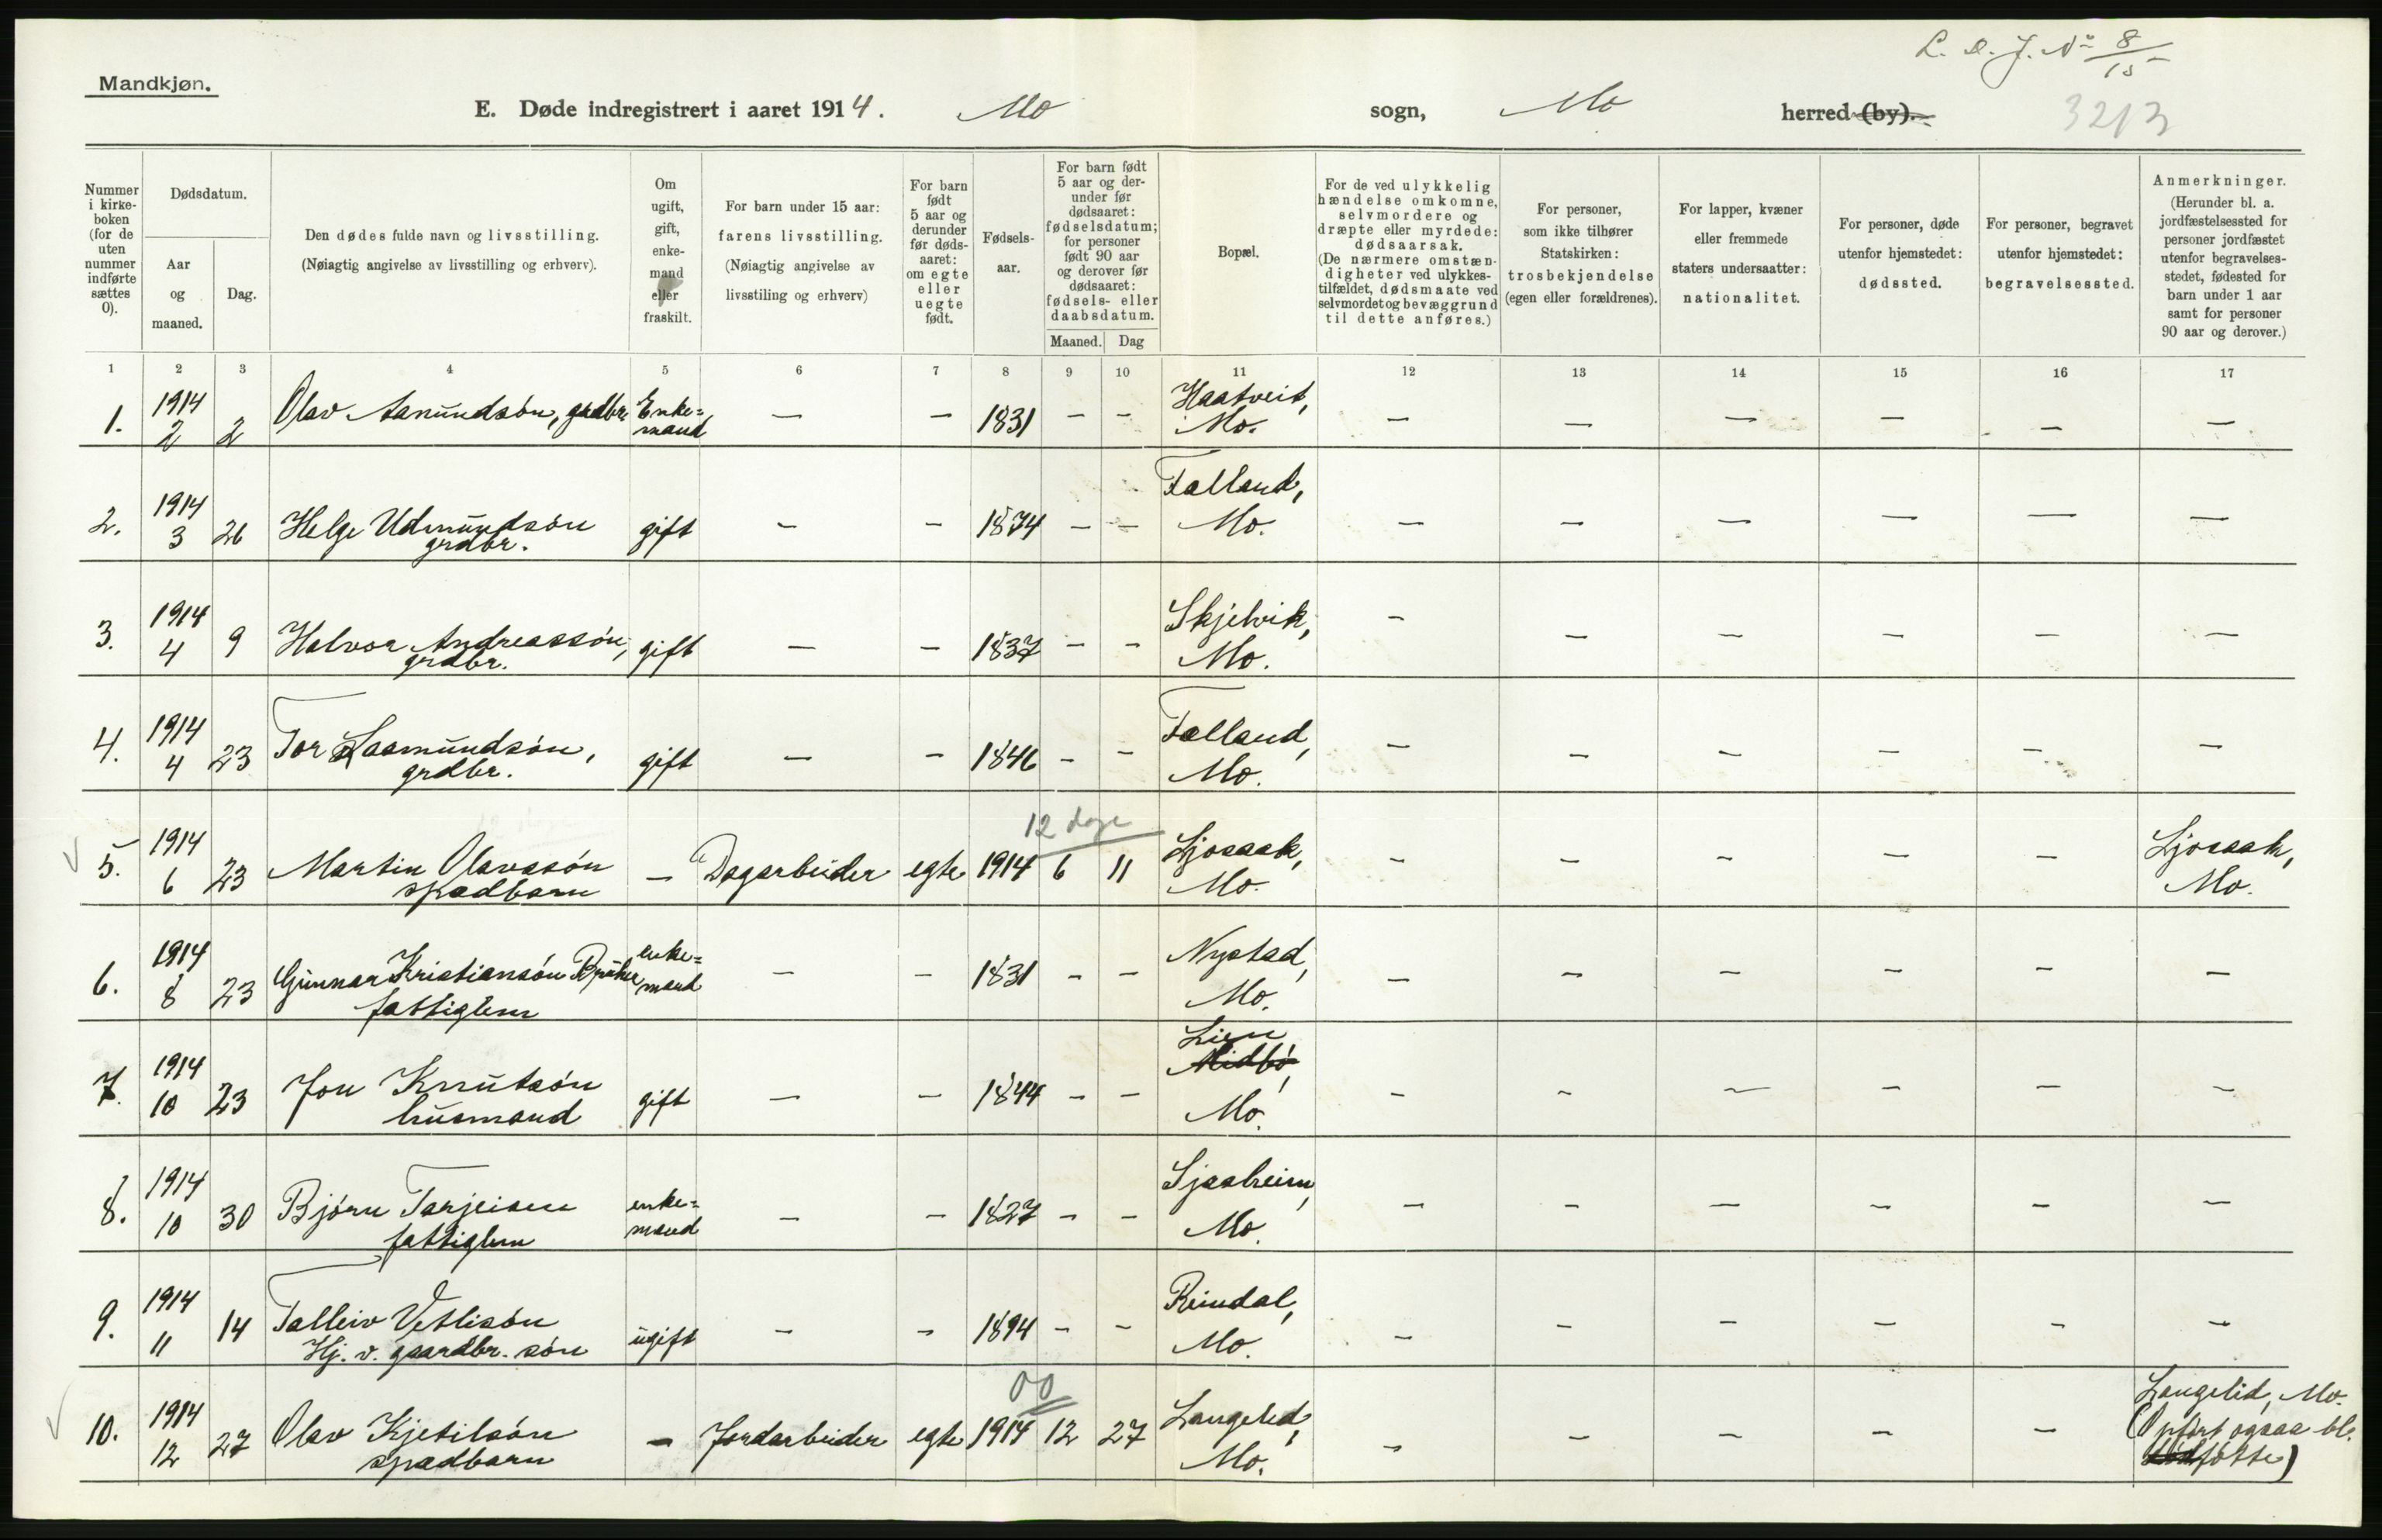 L. D. J. No 8/15
Mandkjøn.
E. Døde indregistrert i aaret 1914. Mo sogn, Mo herred (by).
3213
Nummer i kirke-boken (for de uten nummer indførte sættes 0).
Dødsdatum.
Aar og maaned.
Dag.
Den dødes fulde navn og livsstilling.
(Nøiagtig angivelse av livsstilling og erhverv).
Om ugift, gift, enke-mand eller fraskilt.
For barn under 15 aar:
farens livsstilling.
(Nøiagtig angivelse av
livsstiling og erhverv)
For barn født 5 aar og derunder før døds-aaret: om egte eller uegte født.
Fødsels-aar.
For barn født 5 aar og der-under før dødsaaret: fødselsdatum; for personer født 90 aar og derover før dødsaaret: fødsels- eller daabsdatum.
Maaned.
Dag
Bopæl.
For de ved ulykkelig hændelse omkomne, selvmordere og dræpte eller myrdede: dødsaarsak. (De nærmere omstæn-digheter ved ulykkes-tilfældet, dødsmaate ved selvmordet og bevæggrund til dette anføres.)
For personer, som ikke tilhører Statskirken: trosbekjendelse (egen eller forældrenes).
For lapper, kvæner eller fremmede staters undersaatter: nationalitet.
For personer, døde utenfor hjemstedet: dødssted.
For personer, begravet utenfor hjemstedet: begravelsessted.
Anmerkninger. (Herunder bl. a. jordfæstelsessted for personer jordfæstet utenfor begravelses-stedet, fødested for barn under 1 aar samt for personer 90 aar og derover.)
1 2 3 4 5 6 7 8 9 10 11 12 13 14 15 16 17
1. 1914 2 2 Olav Aanundsøn, grdbr. Enke=mand — — 1831 — — Haatveit, Mo. — — — — — —
2. 1914 3 26 Helge Udmundsøn grdbr. gift — — 1834 — — Falland, Mo. — — — — — —
3. 1914 4 9 Halvor Andreassøn, grdbr. gift — — 1837 — — Skjelvik, Mo. — — — — — —
4. 1914 4 23 Tor Saamundsøn, grdbr. gift — — 1846 — — Falland, Mo. — — — — — —
12 dage
5. 1914 6 23 Martin Olavssøn spædbarn — Dagarbeider egte 1914 6 11 Ljosaak, Mo. — — — — — Ljosaak, Mo.
6. 1914 8 23 Gunnar Kristiansøn fattiglem enke=mand — — 1831 — — Nystad, Mo. — — — — — —
7. 1914 10 23 Jon Knutsøn husmand gift — — 1844 — — Lien Midbø, Mo. — — — — — —
8. 1914 10 30 Bjørn Tarjeisen fattiglem enke=mand — — 1827 — — Sjaaheim, Mo. — — — — — —
9. 1914 11 14 Talleiv Vetlisøn Hj. v. gaardbr. søn ugift — — 1894 — — Reindal, Mo. — — — — — —
00
10. 1914 12 27 Olav Kjetilsøn spædbarn — Jordarbeider egte 1914 12 27 Langelid, Mo. — — — — — Langelid, Mo. (Opført ogsaa bl. føtte)